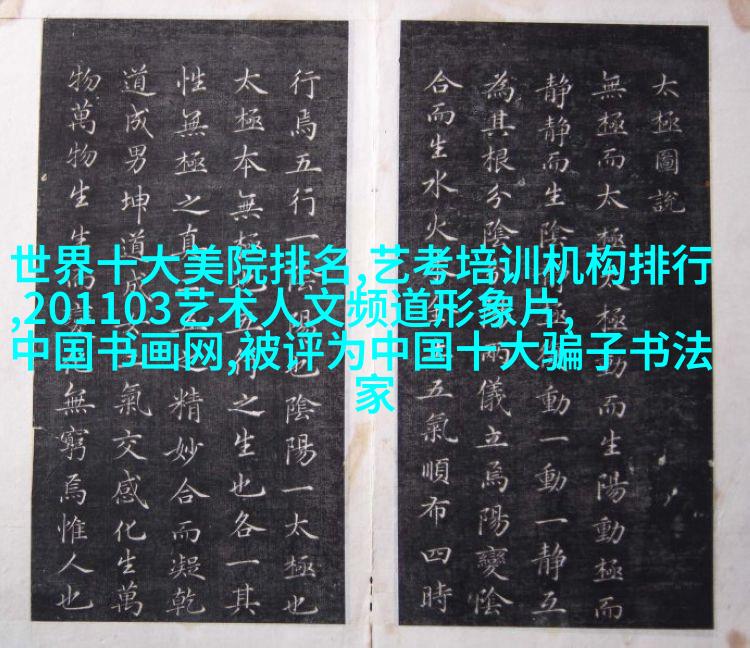 世界十大美院排名,艺考培训机构排行
,201103艺术人文频道形象片,
中国书画网,被评为中国十大骗子书法
家
太極圖說
無極而太極太極動而生陽動極而
静静而生陰動一動一静互
為其根分陰兩儀立焉陽變陰
合而生水火五氣順布四時
行焉五行一陰陽也陰陽一太極也
太極本無極行之生也各一其
性無極之真精妙合而凝乾
道成男坤道成氣交感化生萬
物萬物生生無窮焉惟人也